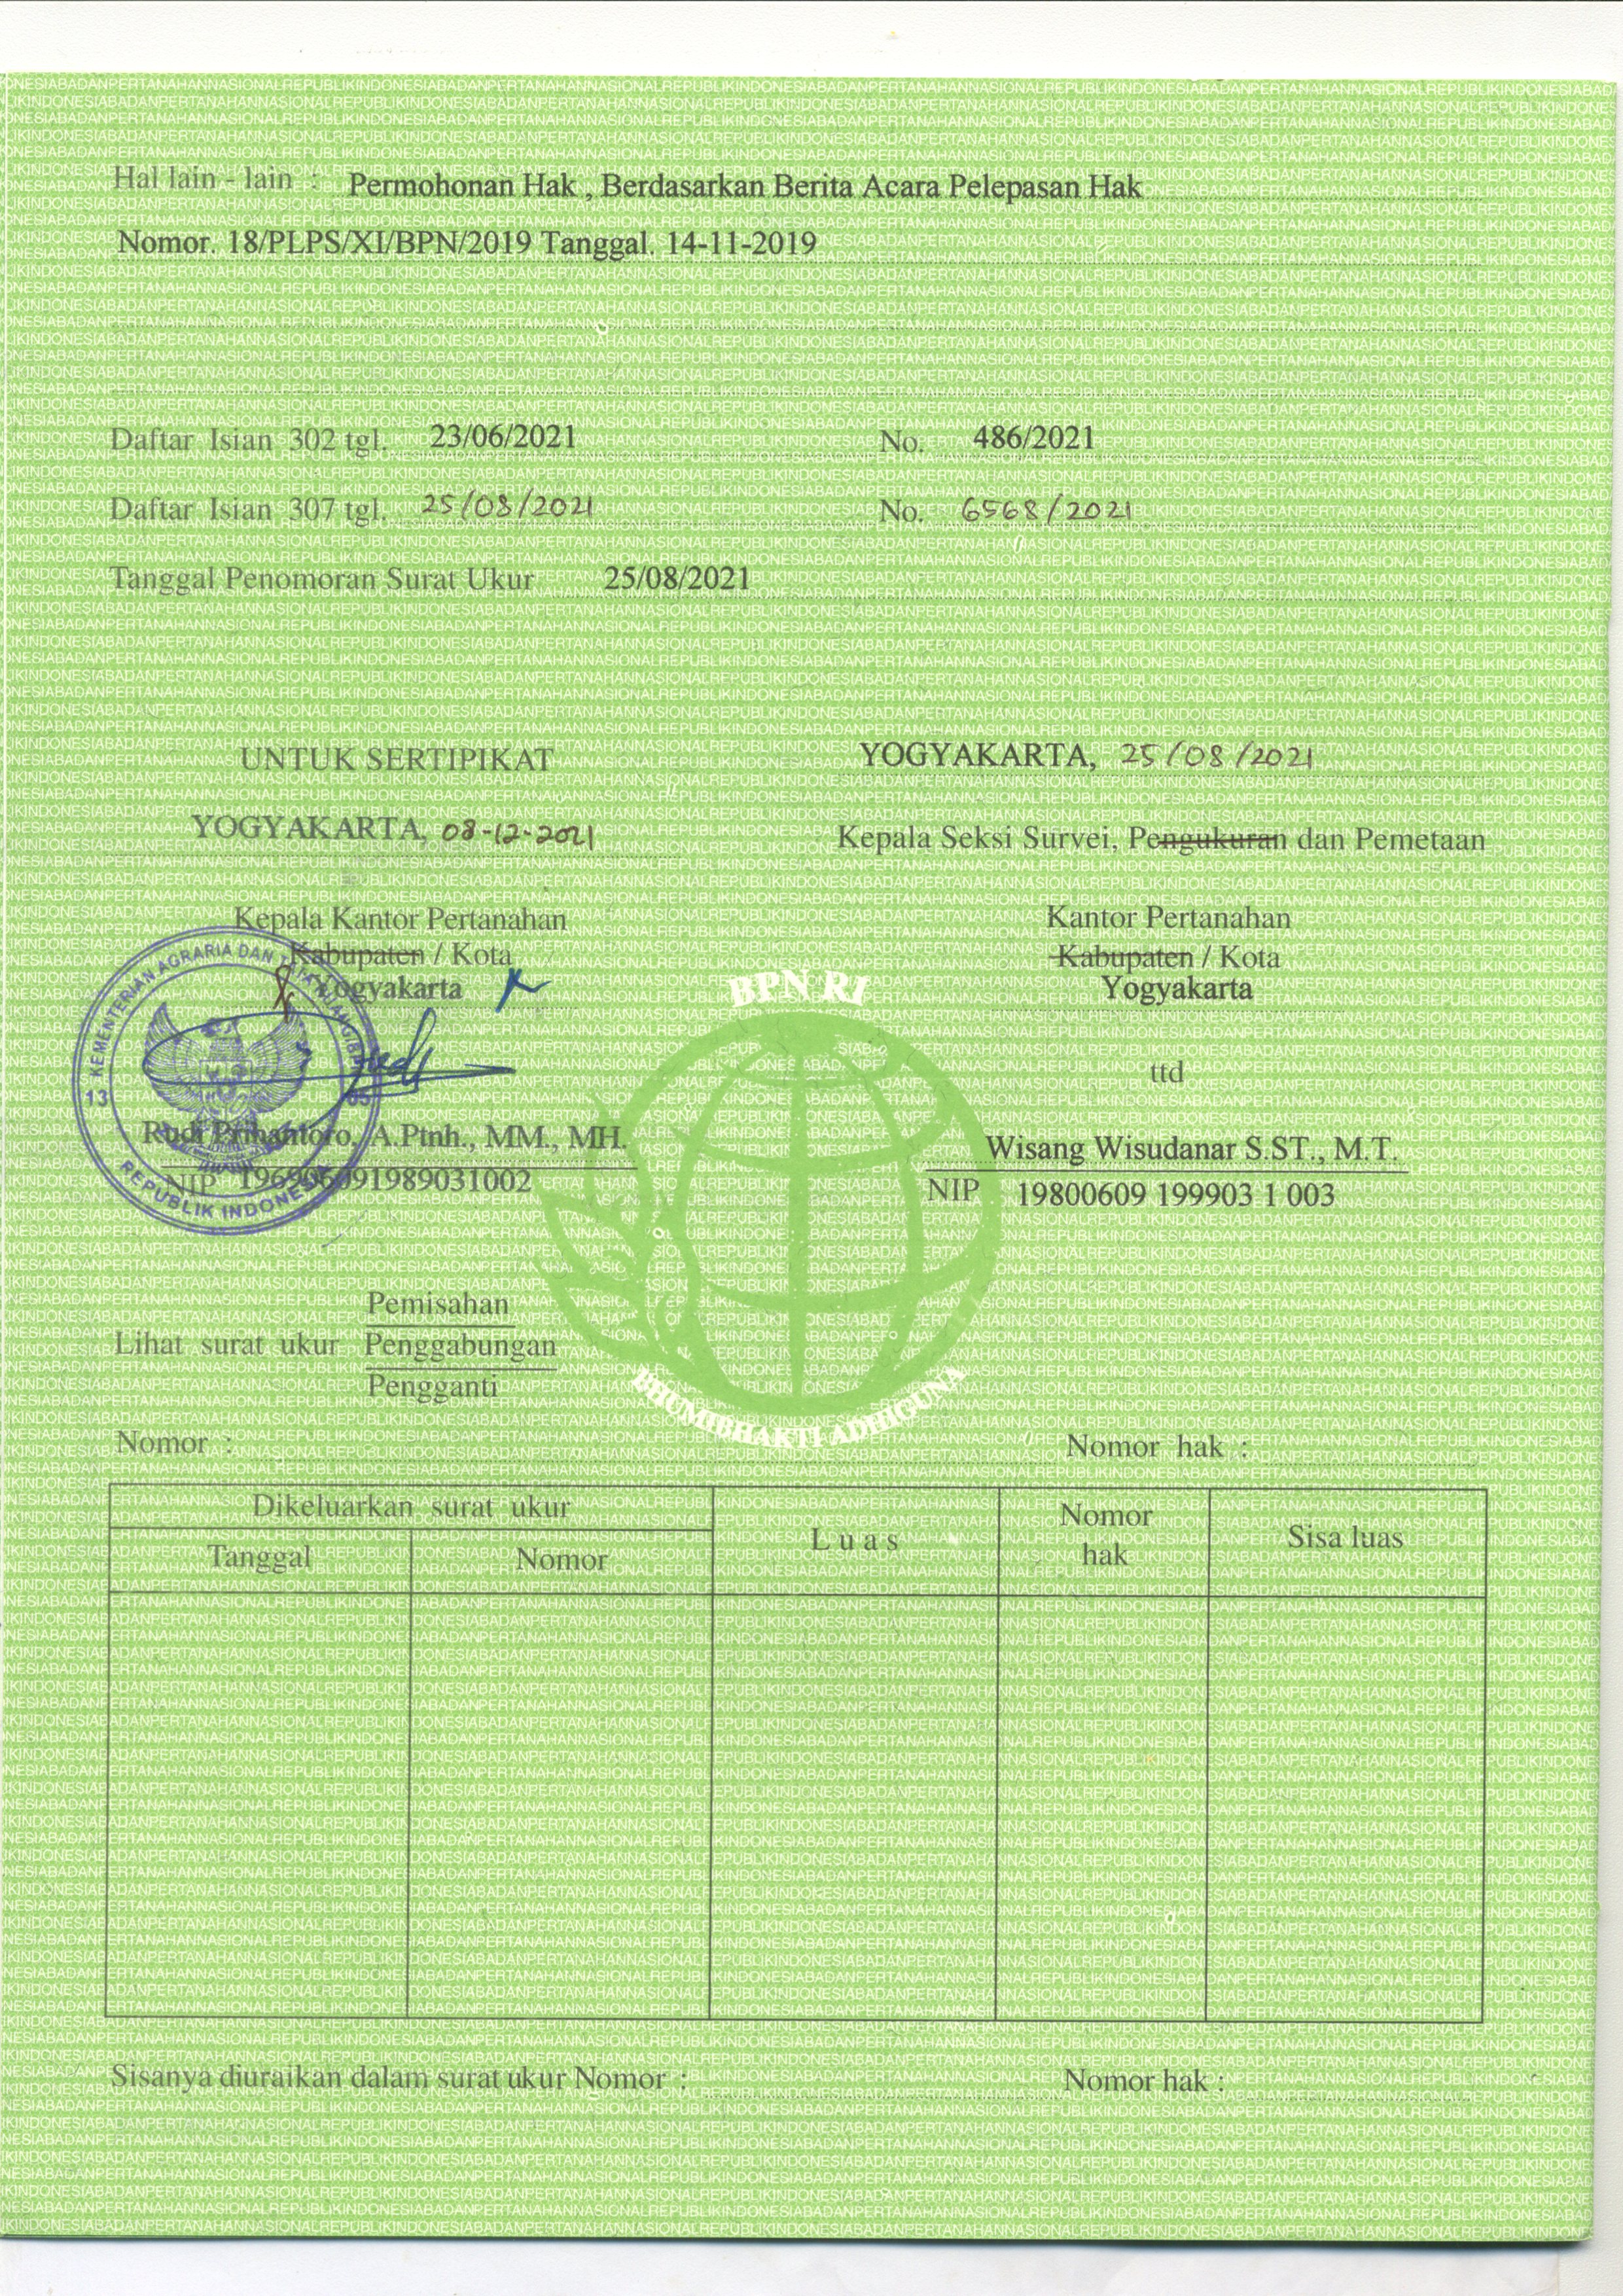 Hal lain - lain : Permohonan Hak , Berdasarkan Berita Acara Pelepasan Hak
Nomor. 18/PLPS/XI/BPN/2019 Tanggal. 14-11-2019
Daftar Isian 302 tgl. 23/06/2021 No. 486/2021
Daftar Isian 307 tgl. 25/08/2021 No. 6568/2021
Tanggal Penomoran Surat Ukur 25/08/2021
UNTUK SERTIPIKAT
YOGYAKARTA, 08-12-2021
Kepala Kantor Pertanahan
Kabupaten / Kota
Yogyakarta
KEMENTERIAN AGRARIA DAN TATA RUANG/B
13 05
REPUBLIK INDONESIA
Rudi Prihantoro, A.Ptnh., MM., MH.
NIP 196906091989031002
YOGYAKARTA, 25/08/2021
Kepala Seksi Survei, Pengukuran dan Pemetaan
Kantor Pertanahan
Kabupaten / Kota
Yogyakarta
ttd
Wisang Wisudanar S.ST., M.T.
NIP 19800609 199903 1 003
BPN RI
BHUMIBHAKTI ADHIGUNA
Pemisahan
Lihat surat ukur Penggabungan
Pengganti
Nomor : Nomor hak :
Dikeluarkan surat ukur
Tanggal Nomor
Luas
Nomor
hak
Sisa luas
Sisanya diuraikan dalam surat ukur Nomor : Nomor hak :